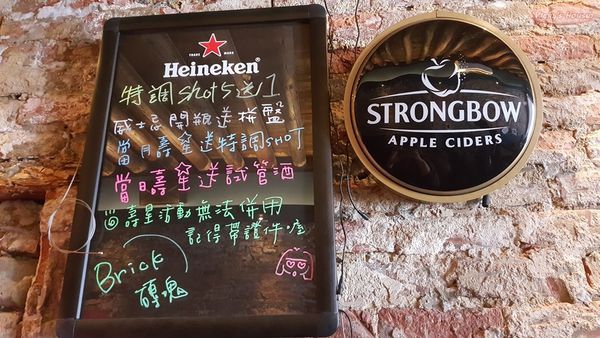 TRADE MARK
Heineken®
特調shot5送1
威士忌開瓶送拼盤
當月壽星送特調SHOT
當日壽星送試管酒
壽星活動無法併用
記得帶證件
Brick
磚魂
STRONGBOW
APPLE CIDERS